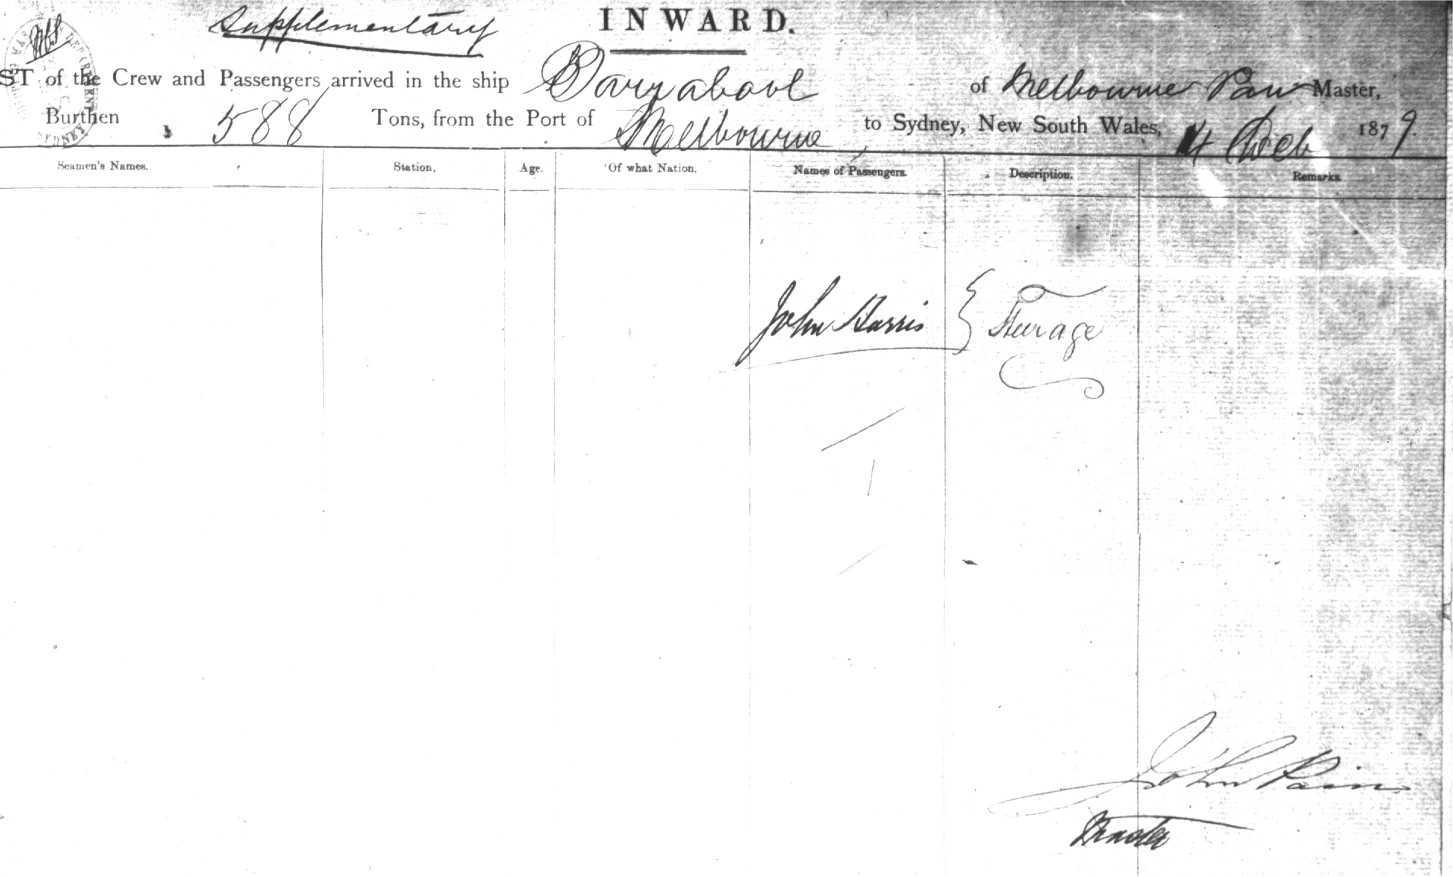 Supplementary
INWARD.
ST of the Crew and Passengers arrived in the ship Barrabool of Melbourne Pain Master,
Burthen 588 Tons, from the Port of Melbourne to Sydney, New South Wales, 4 Feb 1879.
Seamen's Names. Station, Age. Of what Nation, Names of Passengers. Description. Remarks
John Harris } Steerage
John Pain
Master